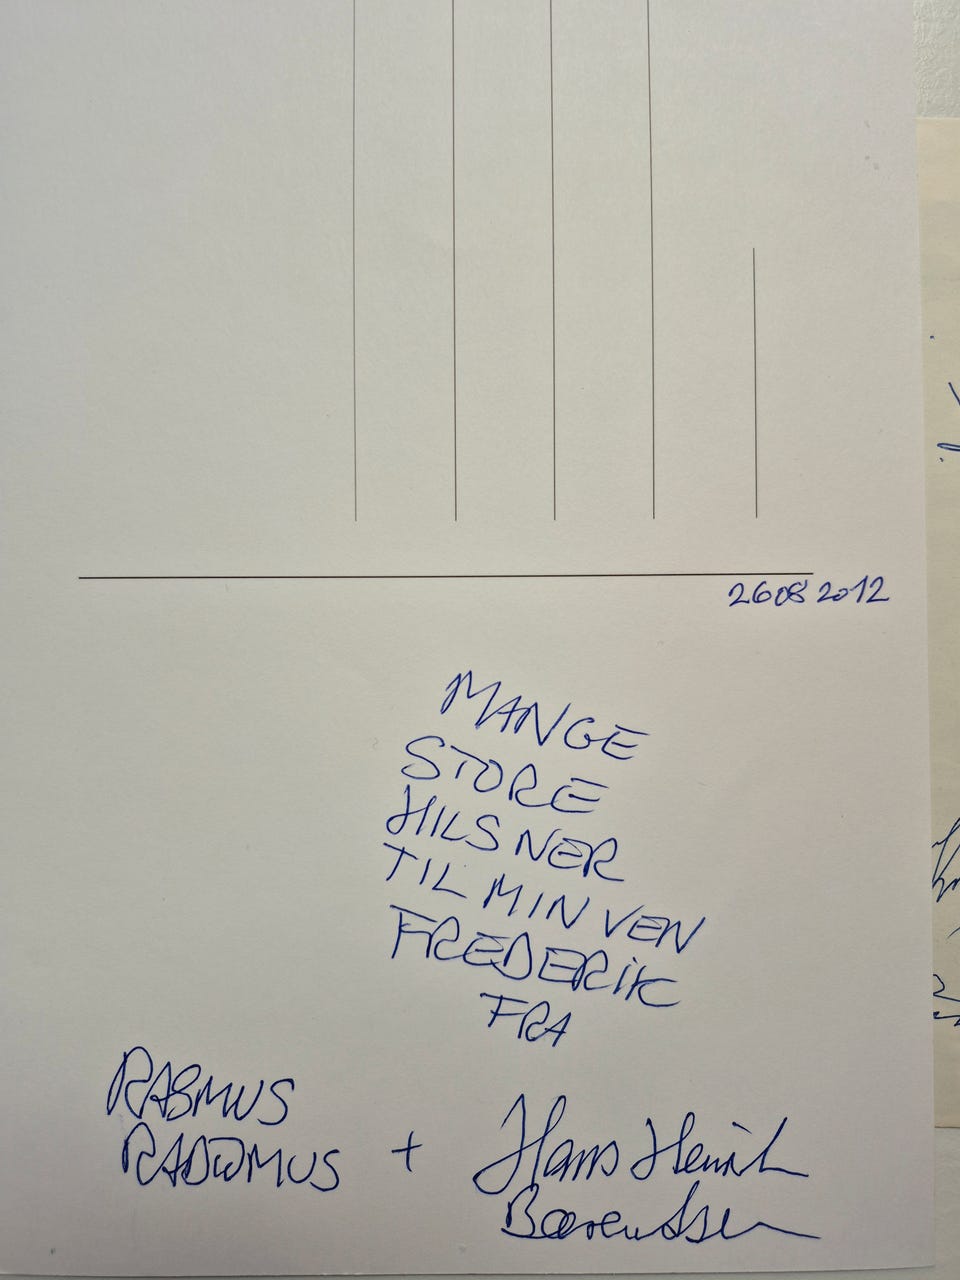 26 08 2012
MANGE
STORE
HILSNER
TIL MIN VEN
FREDERIK
FRA
RASMUS
RADIOMUS + Hans Henrik
Bærentsen